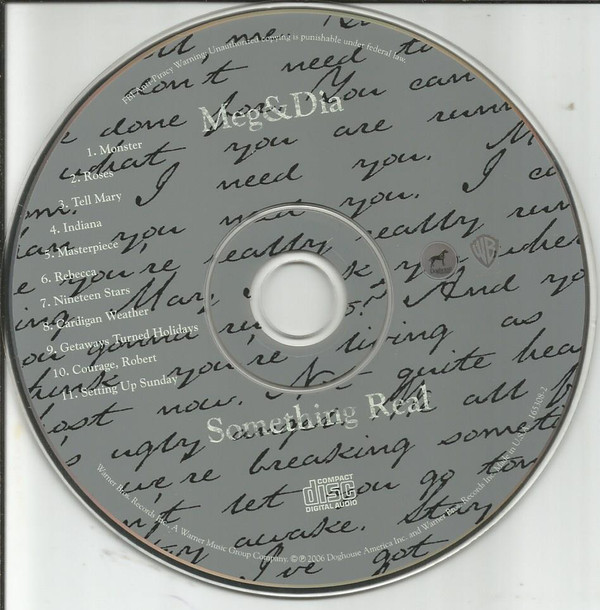 FBI Anti-Piracy Warning: Unauthorized copying is punishable under federal law.
Meg&Dia
1. Monster
2. Roses
3. Tell Mary
4. Indiana
5. Masterpiece
6. Rebecca
7. Nineteen Stars
8. Cardigan Weather
9. Getaways Turned Holidays
10. Courage, Robert
11. Setting Up Sunday
WB
Something Real
COMPACT
disc
DIGITAL AUDIO
Warner Bros. Records Inc. A Warner Music Group Company. © ℗ 2006 Doghouse America Inc. and Warner Bros. Records Inc. Made in U.S.A. 165308-2
don't need to
done for. You can
what you are runn
I need you. M
you. I ca
you're really really run
Mary
you gonna And yo
you're living as
now. Not quite hea
ugly all
we're breaking someti
let you go ton
awake. Stay
I've got